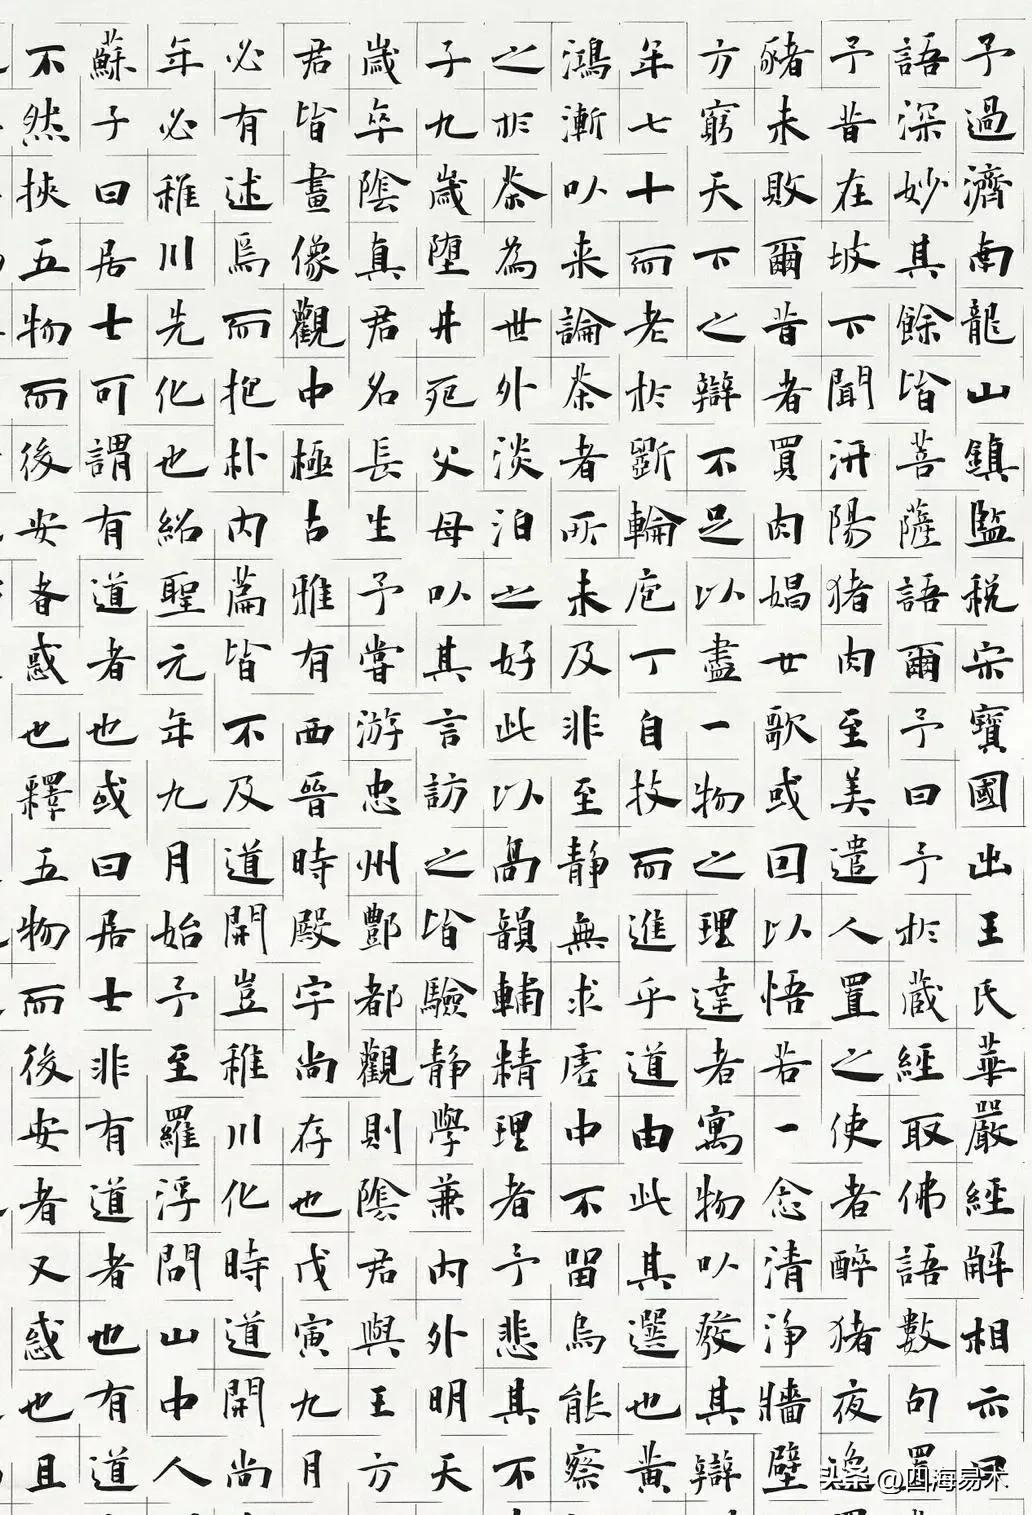 予過濟南龍山鎮監稅宋寶國出王氏華嚴經解相示曰
語深妙其餘皆菩薩語爾予曰予於藏經取佛語數句置
予昔在坡下聞汧陽豬肉至美遣人置之使者醉豬夜逸
豬未敗爾昔者買肉娼女歌或回以悟若一念清淨牆壁
方窮天下之辯不足以盡一物之理達者寓物以發其辯
年七十而老於斲輪庖丁自技而進乎道由此其選也黃
鴻漸以來論茶者所未及非至靜無求虛中不留烏能察
之於茶為世外淡泊之好此以高韻輔精理者予悲其不
子九歲墮井死父母以其言訪之皆驗靜學兼內外明天
歲卒陰真君名長生予嘗游忠州酆都觀則陰君與王方
君皆畫像觀中極古雅有西晉時殿宇尚存也戊寅九月
必有述焉而抱朴內篇皆不及道開豈稚川化時道開尚
年必稚川先化也紹聖元年九月始予至羅浮問山中人
蘇子曰居士可謂有道者也或曰居士非有道者也有道
不然挾五物而後安者惑也釋五物而後安者又惑也且
头条 @四海易术